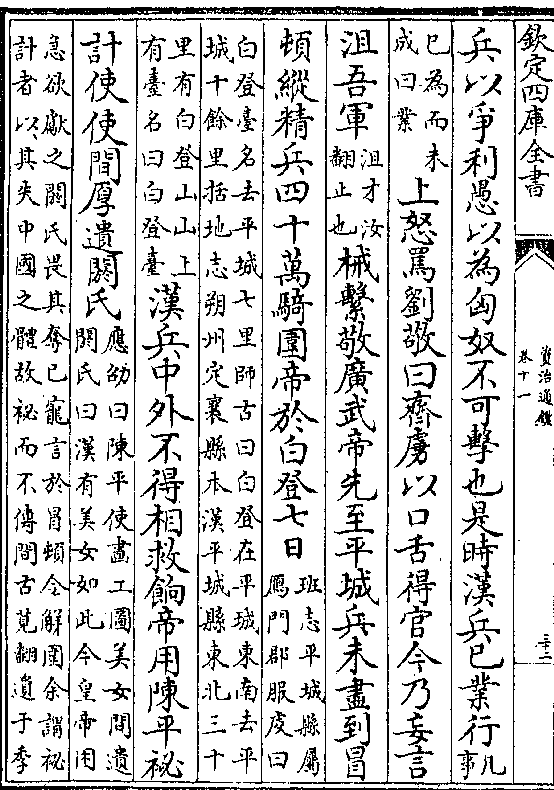 欽定四庫全書
資治通鑑
卷十一
三十二
兵以爭利愚以為匈奴不可擊也是時漢兵已業行
凡事
已為而未
成曰業
上怒罵劉敬曰齊虜以口舌得官今乃妄言
沮吾軍
沮才汝
翻止也
械繫敬廣武帝先至平城兵未盡到冒
頓縱精兵四十萬騎圍帝於白登七日
班志平城縣屬
鴈門郡服虔曰
白登臺名去平城七里師古曰白登在平城東南去平
城十餘里括地志朔州定襄縣本漢平城縣東北三十
里有白登山山上
有臺名曰白登臺
漢兵中外不得相救餉帝用陳平祕
計使使間厚遺閼氏
應劭曰陳平使畫工圖美女間遺
閼氏曰漢有美女如此今皇帝困
急欲獻之閼氏畏其奪已寵言於冒頓令解圍余謂祕
計者以其失中國之體故祕而不傳間古莧翻遺于季